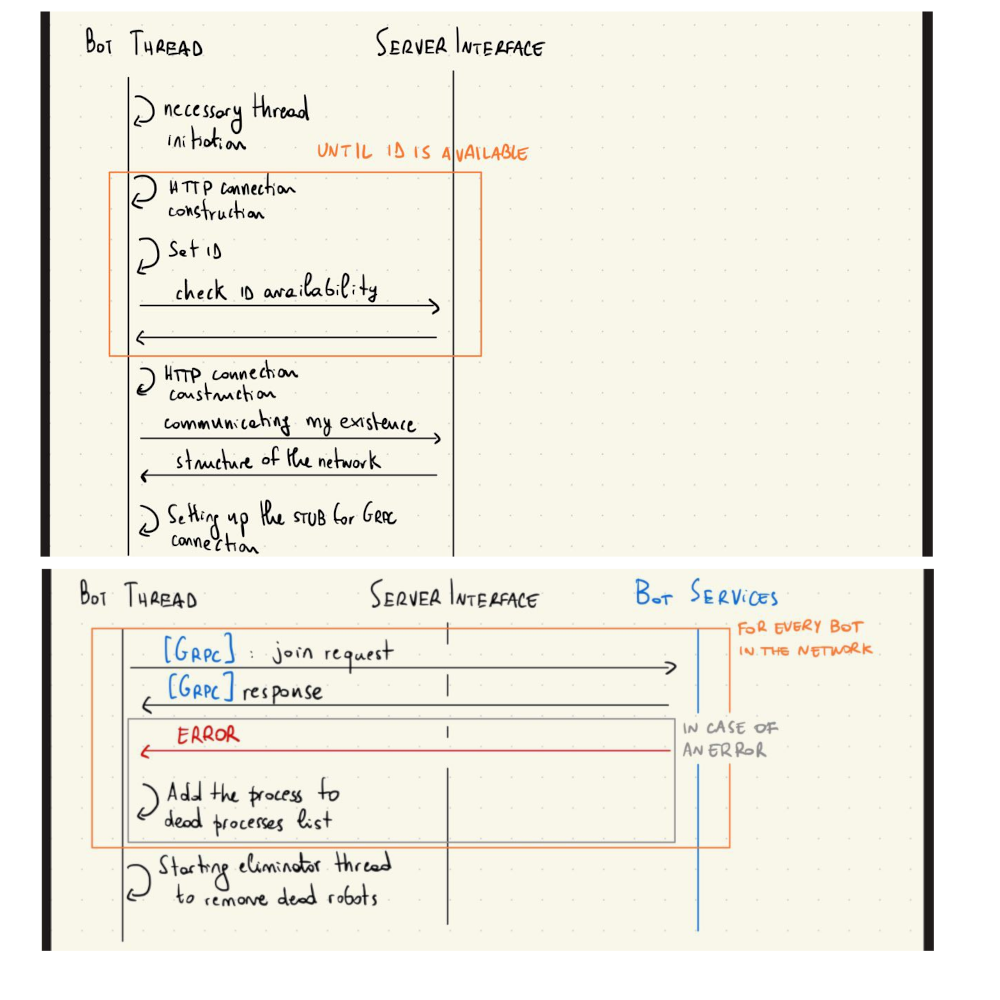 BOT THREAD
SERVER INTERFACE
necessary thread
initiation
UNTIL ID IS AVAILABLE
HTTP connection
construction
Set ID
check ID availability
HTTP connection
construction
communicating my existence
structure of the network
Setting up the STUB for GRPC
connection
BOT THREAD
SERVER INTERFACE
BOT SERVICES
FOR EVERY BOT
IN THE NETWORK
[GRPC] : join request
[GRPC] response
ERROR
IN CASE OF
AN ERROR
Add the process to
dead processes list
Starting eliminator thread
to remove dead robots